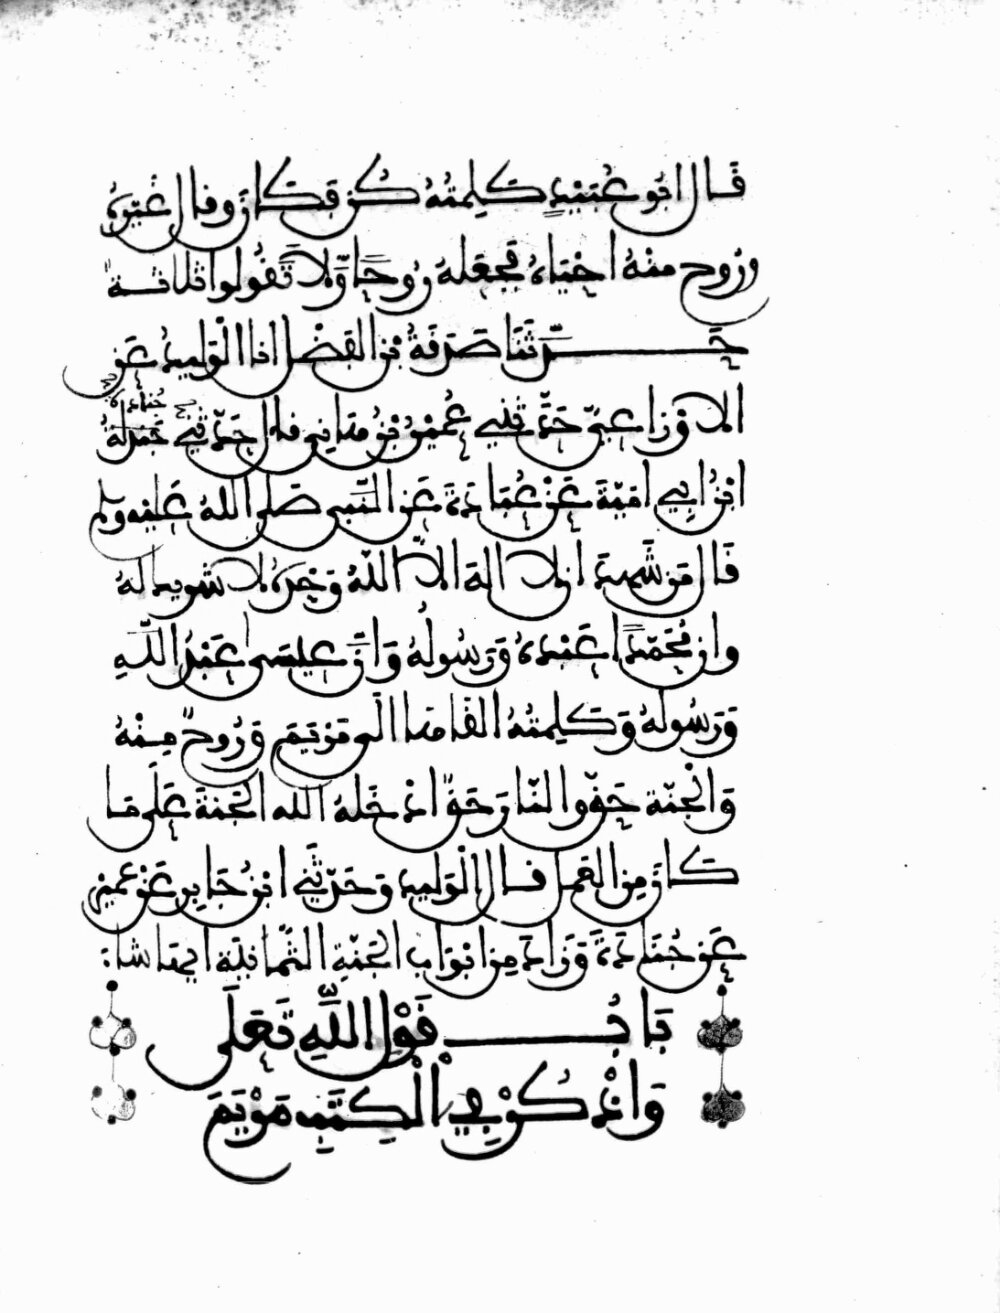 قَال ابُو عُبَيْدٍ كَلِمتُهُ كُن فَكَانَ وقال غَيْرُهُ
ورُوح منهُ احْيَاهُ فجَعَلهُ رُوحًا وَّلَا تَقُولوا ثلاثة
حَدَّثَنَا صَدَقَةُ بْنُ الفَضْل انا الْوَليدُ عَنِ
الاوْزَاعِيِّ حَدَّثَنِي عُمَيْرُ بْنُ هَانِي قال حَدّثنِي جُنَادَةُ
ابْنُ ابِي امَيّةَ عَنْ عُبَادَةَ عَنِ النَّبِي صَلى اللهُ عَلَيْه وسلم
قَال مَن شَهِدَ ان لا الهَ الاَّ اللهُ وَحْدَهُ لا شَرِيكَ لهُ
وان مُحَمّدًا عَبْدُهُ وَرَسُولُهُ وَانَّ عِيسَى عَبْدُ اللهِ
وَرَسُولُهُ وَكَلِمتُهُ القَاهَا الَى مَرْيَمَ وَرُوحٌ مِنْهُ
وَالْجَنّة حَقٌّ والنَّارَ حَقٌّ ادْخَلهُ الله الجَنةَ عَلَى مَا
كَانَ مِنَ العَمل قال الْوَليد وَحَدّثَنِي ابْنُ جَابِر عَنْ عُمَيْر
عَن جُنَادَةَ وَزَادَ مِنَ ابْوَابِ الجَنّةِ الثّمَانِيَة ايهَا شاءَ
بَابُ قَوْلِ اللَّهِ تَعَلَى
وَاذْكُرْ فِي الْكِتَبِ مَرْيَمَ